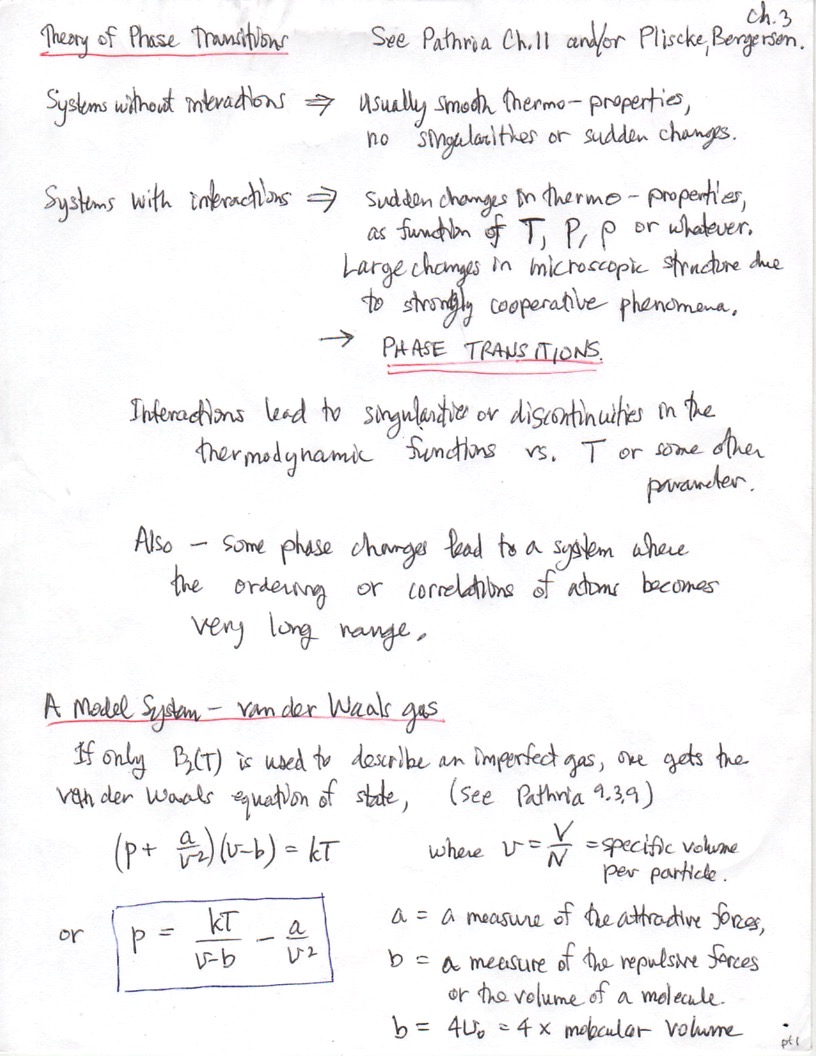 Ch. 3
Theory of Phase Transitions See Pathria Ch.11 and/or Plischke, Bergersen.
Systems without interactions ⇒ Usually smooth thermo-properties,
no singularities or sudden changes.
Systems with interactions ⇒ sudden changes in thermo-properties,
as function of T, P, ρ or whatever.
Large changes in microscopic structure due
to strongly cooperative phenomena.
→ PHASE TRANSITIONS.
Interactions lead to singularities or discontinuities in the
thermodynamic functions vs. T or some other
parameter.
Also – some phase changes lead to a system where
the ordering or correlations of atoms becomes
very long range.
A Model System – van der Waals gas
If only B₂(T) is used to describe an imperfect gas, one gets the
van der Waals equation of state, (see Pathria 9.3.9)
(p + a/v²)(v-b) = kT where v = V/N = specific volume
per particle.
or p = kT/(v-b) – a/v² a = a measure of the attractive forces,
b = a measure of the repulsive forces
or the volume of a molecule.
b = 4v₀ = 4 × molecular volume
pt 1